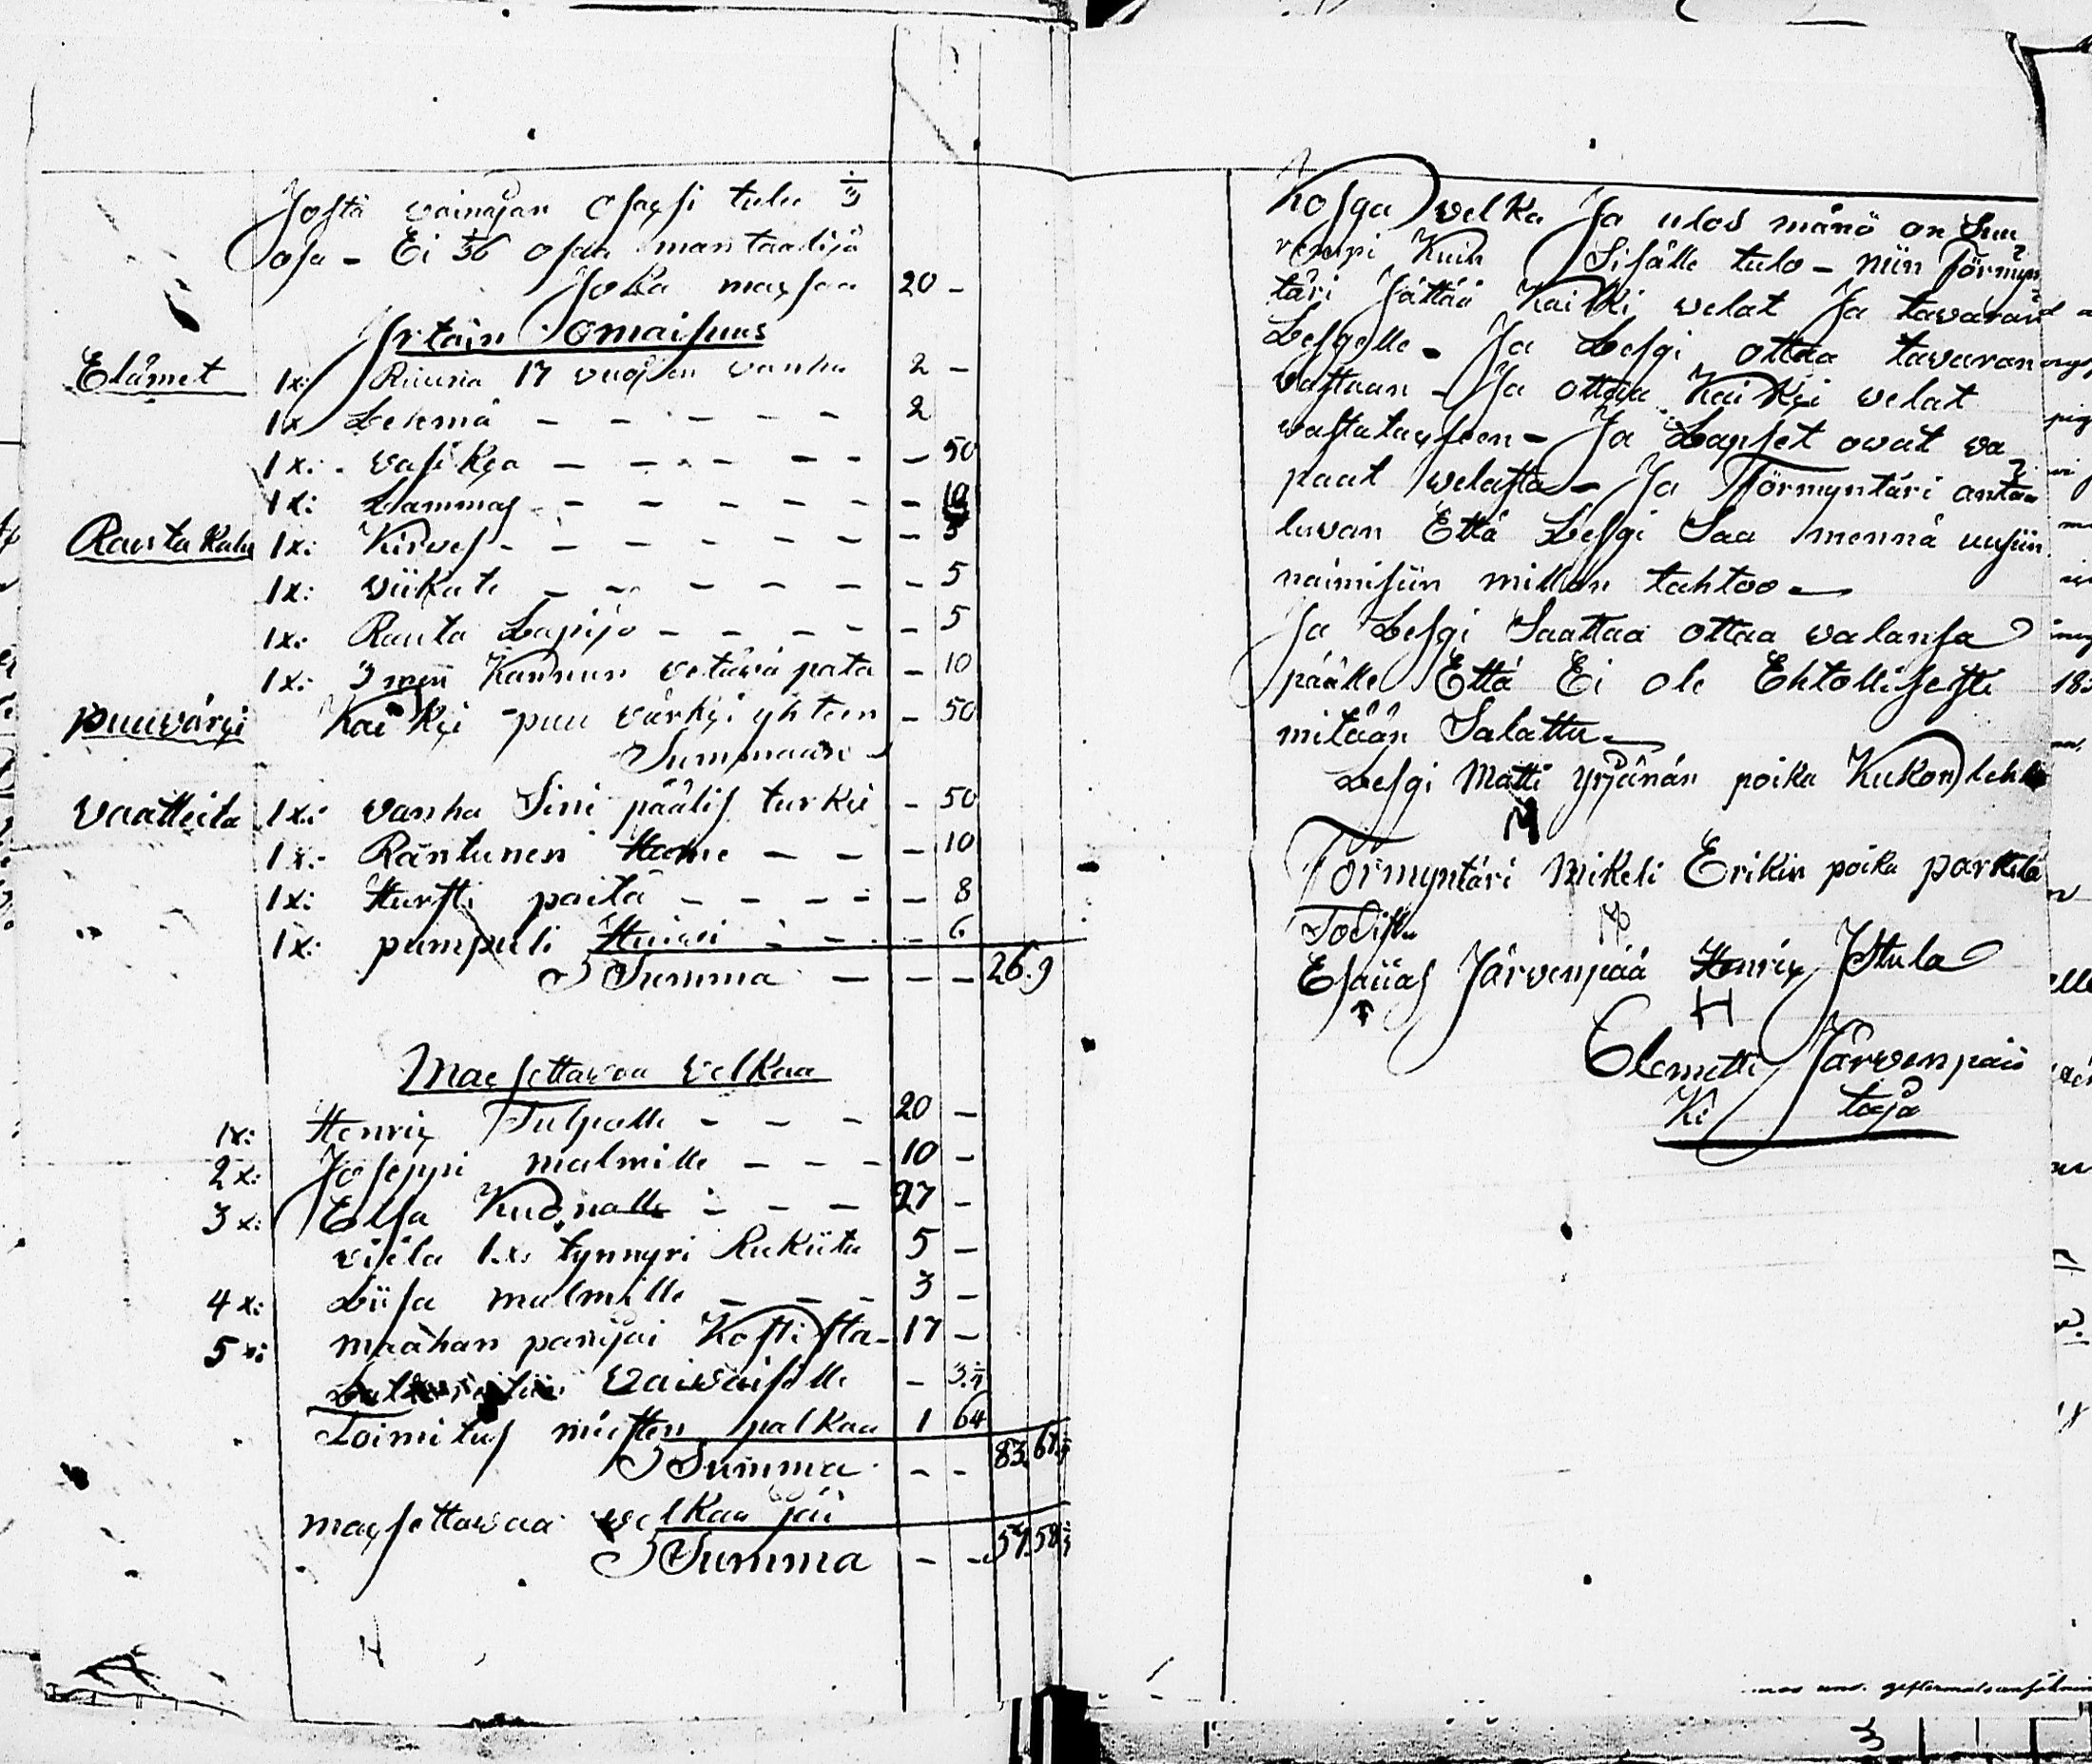 Josta vainajan Osaxsi tulee 1/3
osa - Ei 1/36 osaa mantaalisa
Joka maxsaa 20 -
Jrtain Omaisuus
Elämet 1x: Ruuna 17 vuoten vanha 2 -
1x Lehmä - - - - - - 2
1x: vasikza - - - - - - 50
1x: Lammas - - - - - - 10
Rautakalu 1x: Kirves - - - - - - - 5
1x: viikate - - - - - - 5
1x: Rauta Lapijo - - - - - 5
1x: 3 men Kannun vetävä pata - 10
puuvärçi Kaikçi puu värkçi yhteen - 50
Summaan
vaatteita 1x: vanha Sini päälis turkki - 50
1x: Räntunen Hame - - - 10
1x: Hursti paita - - - - - 8
1x: pumpuli Huiwi - - - 6
Summa - - - 26.9
Maxsettawaa velkaa
1x: Henrix Tulpalle - - - 20 -
2x: Joseppi malmille - - - 10 -
3x: Elsa Kuonalle - - - 27 -
vielä 1.x. tynnyri Rukiita 5 -
4x: Liisa malmille - - - 3 -
5x: maahan panijai Kostista - 17 -
vaiwaisille - 3.1/4
Toimitus miesten palkaa 1 64
Summa - - 83 67 1/4
maxsettawaa velkaa jää
Summa - - 57.58 1/4
Kosga velka Ja ulos mänö on Suu
rempi Kuin Sisälle tulo - niin Förmyn
täri Jättää Kaikki velat Ja tavarand
Lesgelle - Ja Lesgi ottaa tavaran
vastaan - Ja ottaa Kaikçi velat
wastataxseen - Ja Lapset owat va
paat velasta - Ja Förmyntäri antaa
luvan Että Lesgi Saa mennä uusiin
naimisiin millon tahtoo -
Ja Lesgi Saattaa ottaa valansa
päälle Että Ei ole Ehtollisesti
mitään Salattu -
Lesgi Matti yrjänän poika Kukonlehto
M
Förmyntäri Mikeli Erikin poika parkila
Todistu
Esaijas Järvenpää Henrix Jstula
H
Clemetti Järwenpää
Ki taja